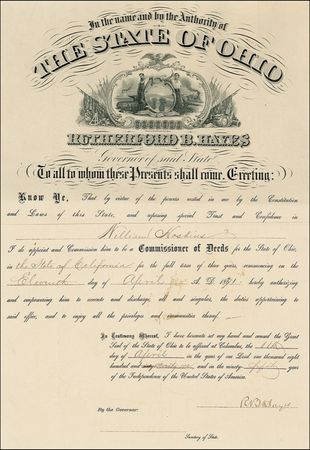 In the name and by the Authority of
THE STATE OF OHIO
RUTHERFORD B. HAYES
Governor of said State
To all to whom these Presents shall come, Greeting:
Know Ye, That by virtue of the powers vested in me by the Constitution
and Laws of this State, and reposing special Trust and Confidence in
William Hoskins
I do appoint and Commission him to be a Commissioner of Deeds for the State of Ohio,
in the State of California for the full term of three years, commencing on the
Eleventh day of April A. D. 1871, hereby authorizing
and empowering him to execute and discharge, all and singular, the duties appertaining
to said office, and to enjoy all the privileges and immunities thereof
In Testimony Whereof, I have hereunto set my hand and caused the Great
Seal of the State of Ohio to be affixed at Columbus, the 11th
day of April in the year of our Lord one thousand eight
hundred and seventy one and in the ninety fifth year
of the Independence of the United States of America.
R. B. Hayes
By the Governor:
Secretary of State.